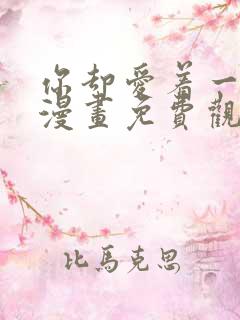 你却愛着一
漫畫免費觀
比馬克思